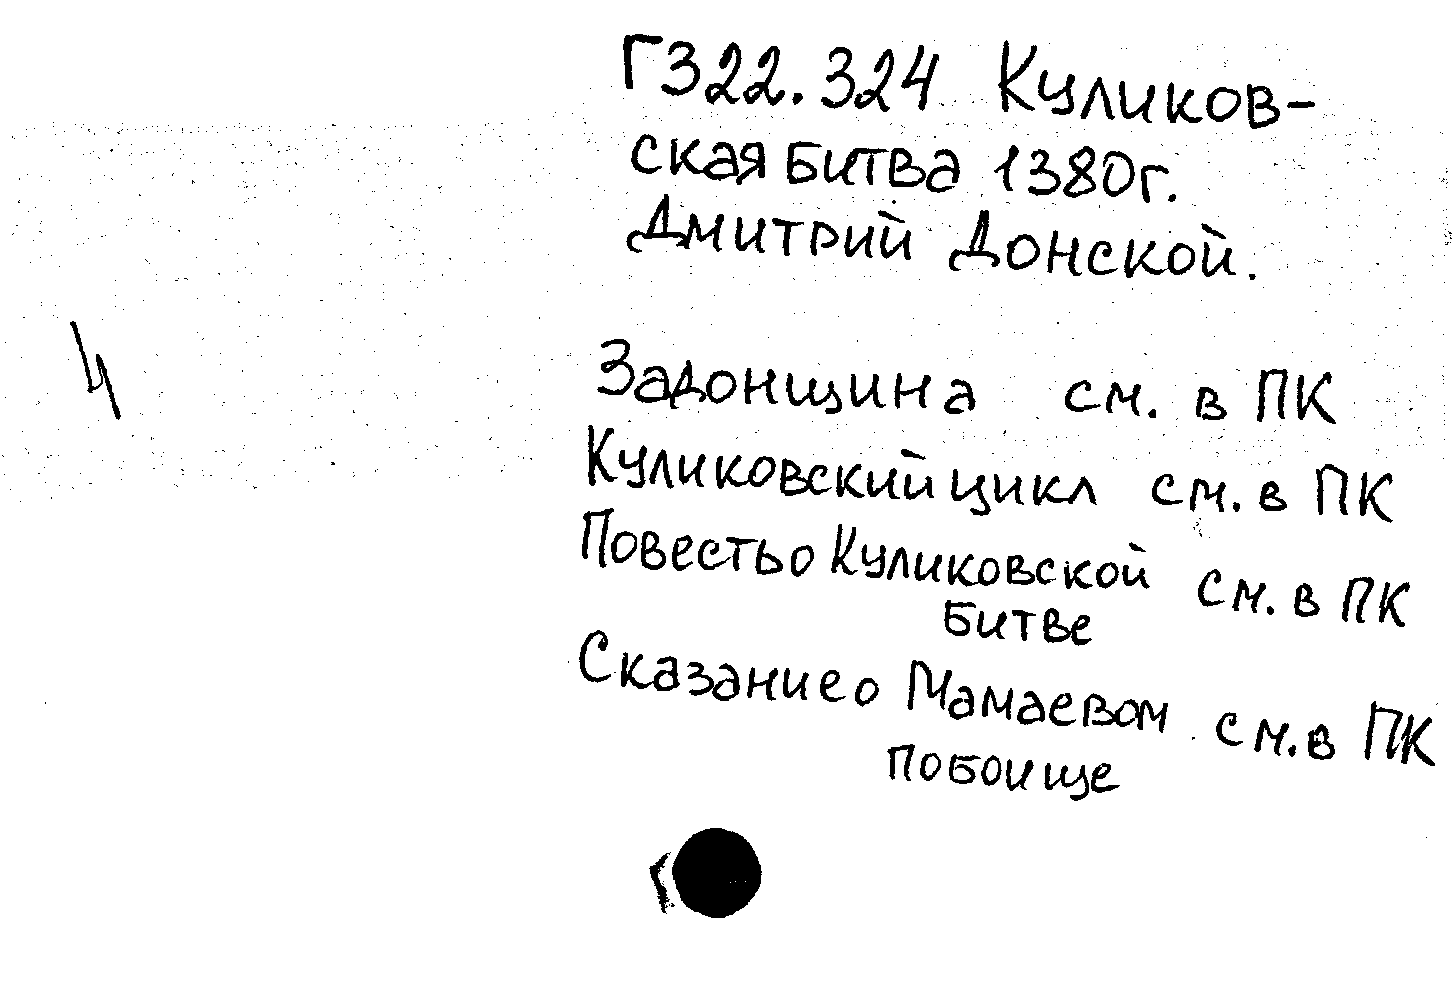 Г322.324 Куликов-
ская битва 1380г.
Дмитрий Донской.
Задонщина см. в ПК
Куликовский цикл см. в ПК
Повесть о Куликовской см. в ПК
битве
Сказание о Мамаевом см. в ПК
побоище